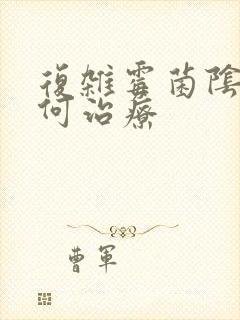 復雜霉菌陰
何治療
曹軍